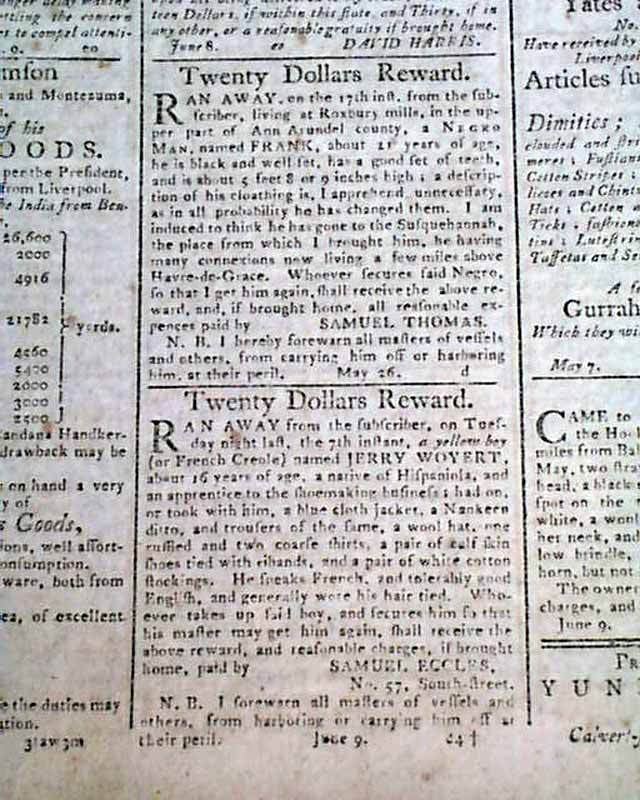 teen Dollars, if within this state, and Thirty, if in
any other, or a reasonable gratuity if brought home.
June 8. eo DAVID HARRIS.
Twenty Dollars Reward.
RAN AWAY, on the 17th inst. from the sub-
scriber, living at Roxbury mills, in the up-
per part of Ann Arundel county, a NEGRO
MAN, named FRANK, about 21 years of age,
he is black and well set, has a good set of teeth,
and is about 5 feet 8 or 9 inches high; a descrip-
tion of his cloathing is, I apprehend, unnecessary,
as in all probability he has changed them. I am
induced to think he has gone to the Susquehannah,
the place from which I brought him, he having
many connexions now living a few miles above
Havre-de-Grace. Whoever secures said Negro,
so that I get him again, shall receive the above re-
ward, and, if brought home, all reasonable ex-
pences paid by SAMUEL THOMAS.
N. B. I hereby forewarn all masters of vessels
and others, from carrying him off or harboring
him, at their peril. May 26. d
Twenty Dollars Reward.
RAN AWAY from the subscriber, on Tues-
day night last, the 7th instant, a yellow boy
(or French Creole) named JERRY WOYERT,
about 16 years of age, a native of Hispaniola, and
an apprentice to the shoemaking business; had on,
or took with him, a blue cloth jacket, a Nankeen
ditto, and trousers of the same, a wool hat, one
ruffled and two coarse shirts, a pair of calf skin
shoes tied with ribands, and a pair of white cotton
stockings. He speaks French, and tolerably good
English, and generally wore his hair tied. Who-
ever takes up said boy, and secures him so that
his master may get him again, shall receive the
above reward, and reasonable charges, if brought
home, paid by SAMUEL ECCLES,
No. 57, South-street.
N. B. I forewarn all masters of vessels and
others, from harboring or carrying him off at
their peril. June 9. e4†
to compel attenti-
9. eo
nson
and Montezuma,
of his
OODS.
per the President,
from Liverpool.
the India from Ben-
26,600
2000
4916
21782
yards.
4560
5400
2000
3000
2500
Bandana Handker-
drawback may be
s on hand a very
ty of
s Goods,
ions, well assort-
onsumption.
ware, both from
ea, of excellent
e the duties may
ation.
3taw3m
Yates
No.
Have received by
Liverpool
Articles su
Dimities;
clouded and stri
meres; Fustian
Cotton Stripes;
lieres and Chint
Hats; Cotton
Ticks; fashion
tins; Lutestrin
Taffetas and Se
A fe
Gurrah
Which they wi
May 7.
CAME to
the Hoo
miles from Bal
May, two stra
head, a black
spot on the
white, a won
her neck, and
low brindle,
horn, but not
The owner
charges, and
June 9.
PR
YUN
Calvert-